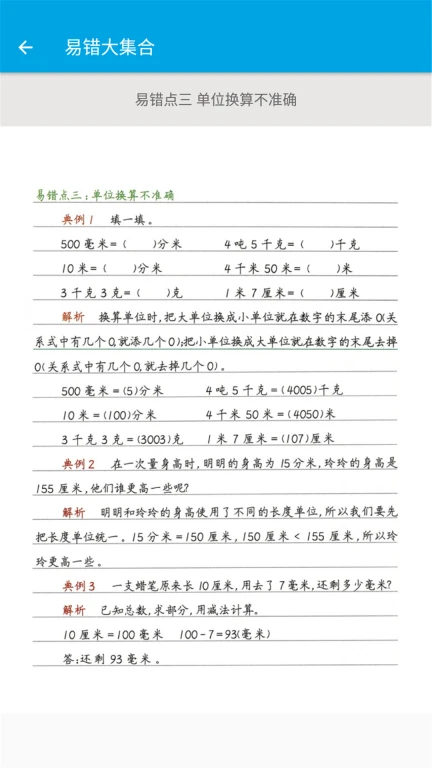 易错大集合
易错点三 单位换算不准确
易错点三:单位换算不准确
典例1 填一填。
500 毫米=( )分米 4 吨 5 千克=( )千克
10 米=( )分米 4 千米 50 米=( )米
3 千克 3 克=( )克 1 米 7 厘米=( )厘米
解析 换算单位时,把大单位换成小单位就在数字的末尾添 0(关
系式中有几个 0,就添几个 0);把小单位换成大单位就在数字的末尾去掉
0(关系式中有几个 0,就去掉几个 0)。
500 毫米=(5)分米 4 吨 5 千克=(4005)千克
10 米=(100)分米 4 千米 50 米=(4050)米
3 千克 3 克=(3003)克 1 米 7 厘米=(107)厘米
典例2 在一次量身高时,明明的身高为 15分米,玲玲的身高是
155 厘米,他们谁更高一些呢?
解析 明明和玲玲的身高使用了不同的长度单位,所以我们要先
把长度单位统一。15 分米=150 厘米,150 厘米 < 155 厘米,所以玲
玲更高一些。
典例3 一支蜡笔原来长 10厘米,用去了 7毫米,还剩多少毫米?
解析 已知总数,求部分,用减法计算。
10 厘米=100 毫米 100-7=93(毫米)
答:还剩 93 毫米。